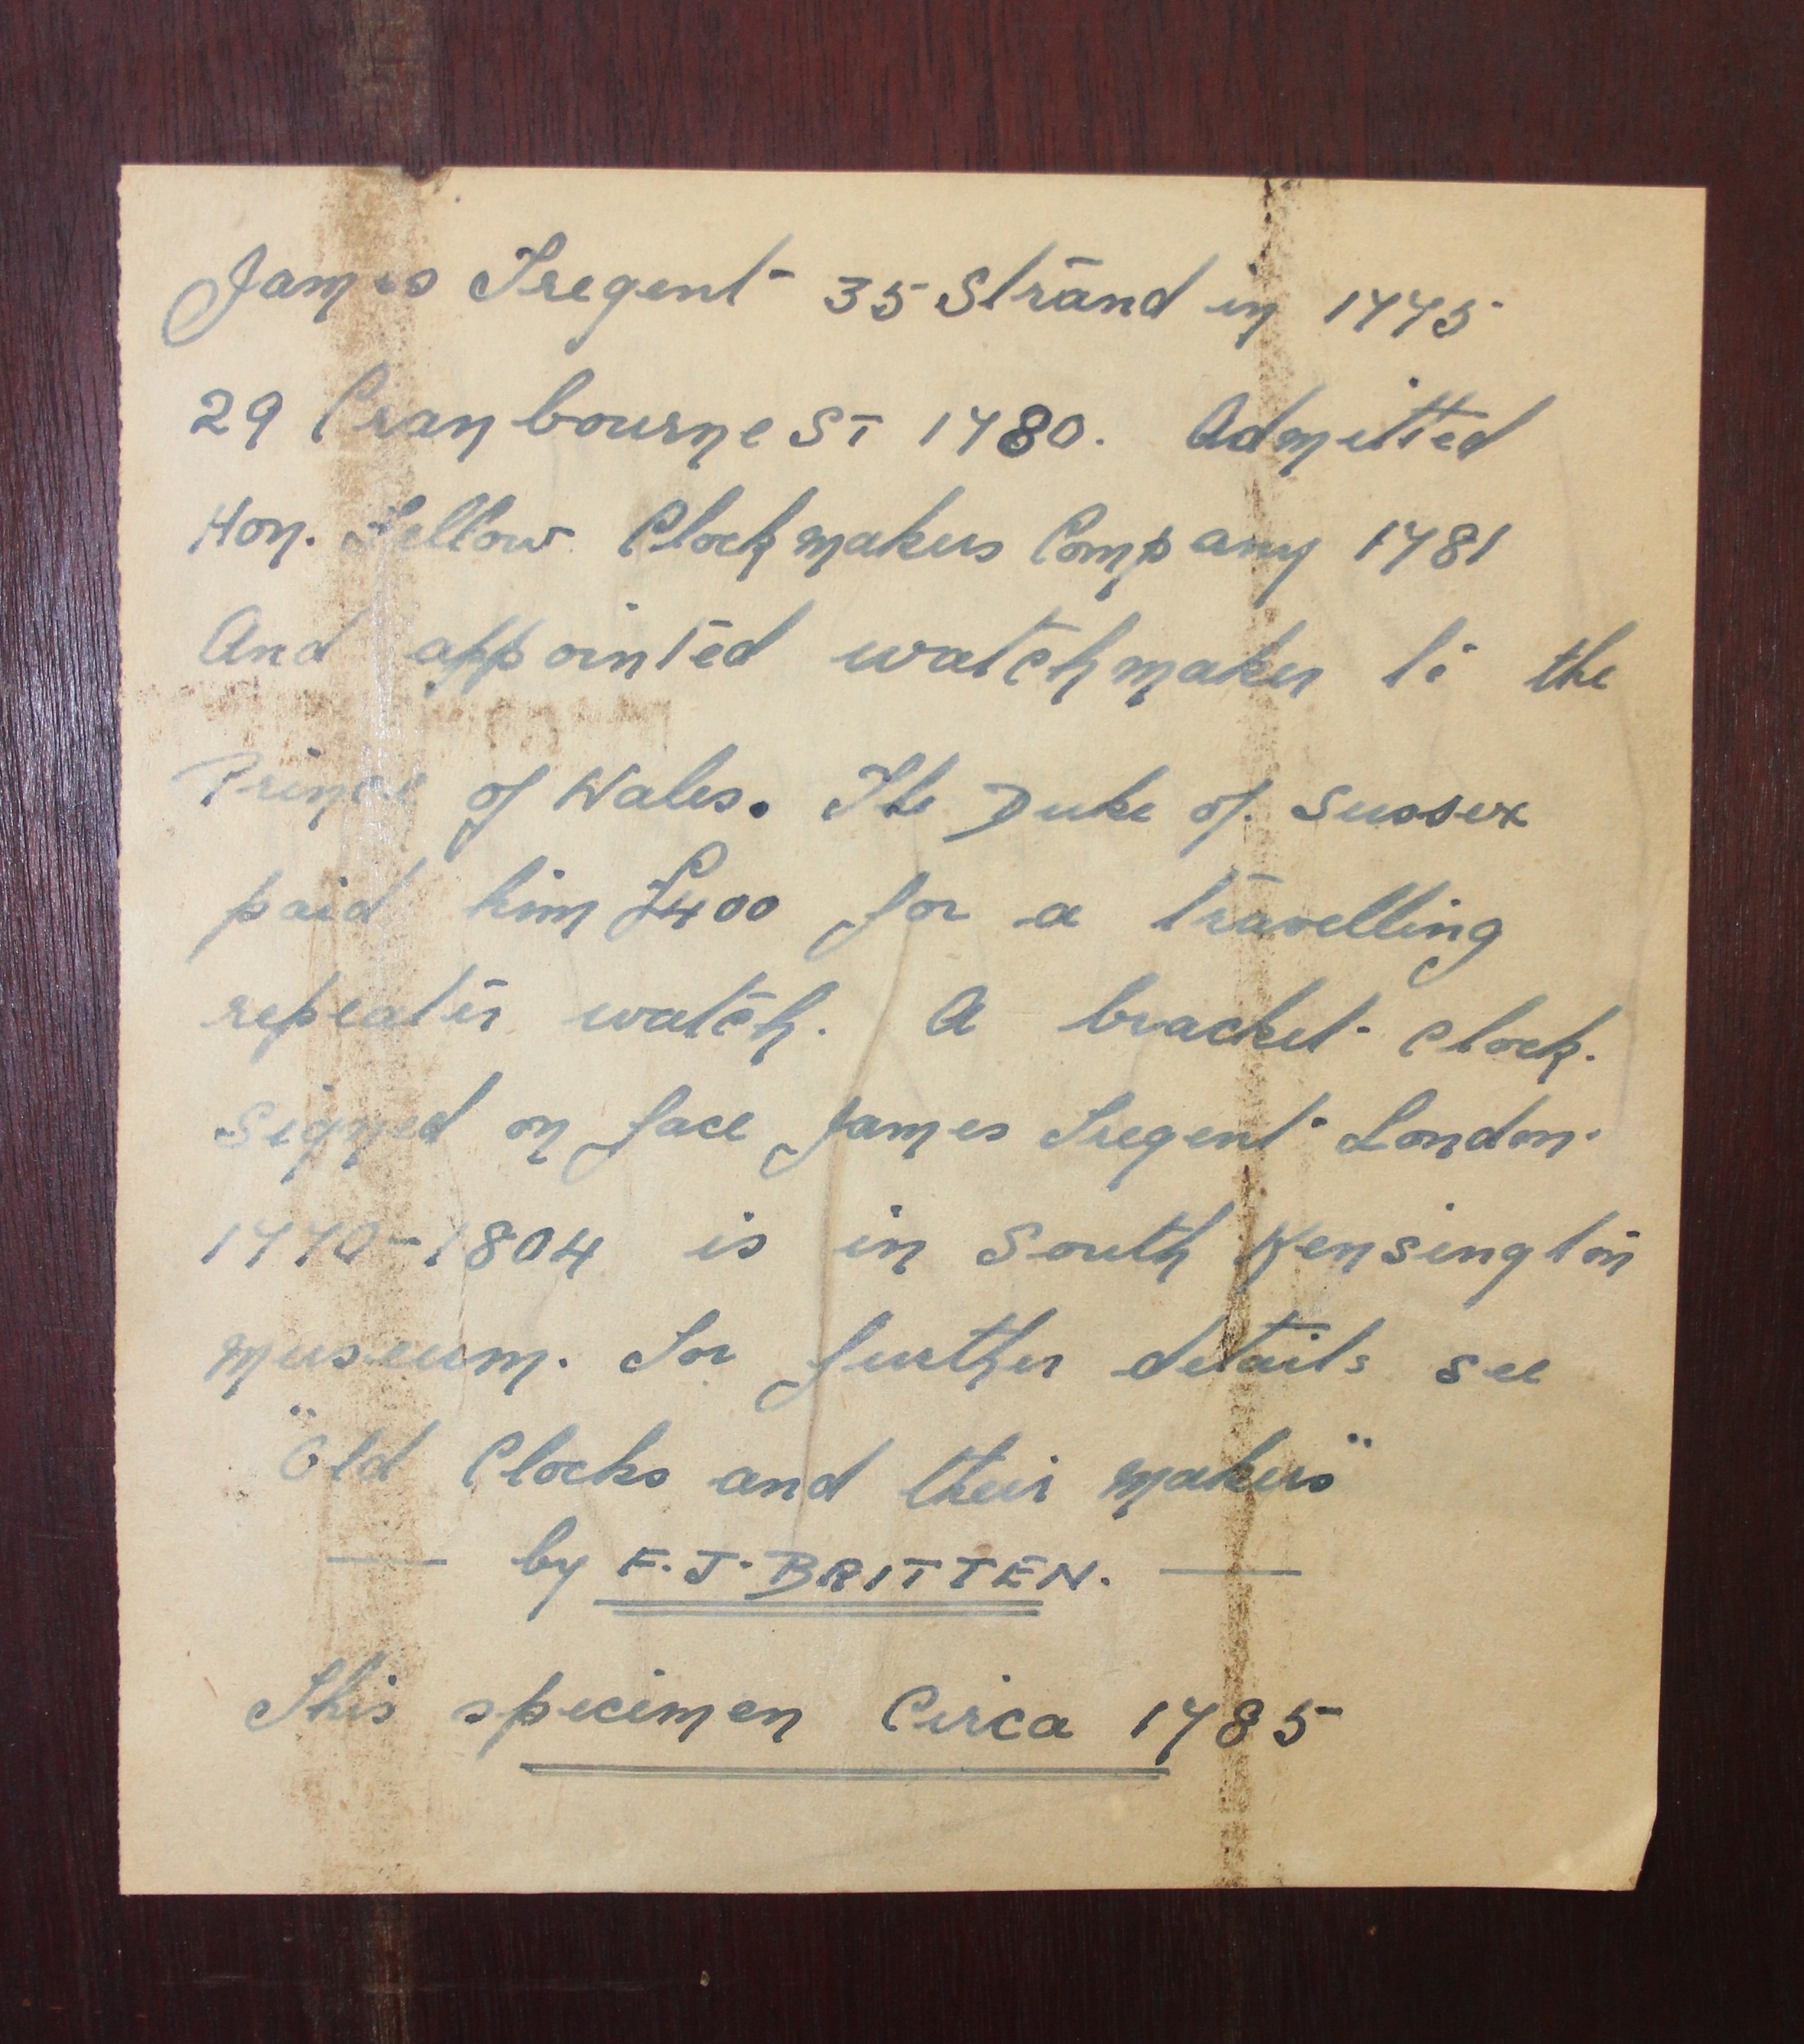 James Tregent 35 Strand in 1775
29 Cranbourne ST 1780. Admitted
Hon. Fellow Clockmakers Company 1781
And appointed watchmaker to the
Prince of Wales. The Duke of Sussex
paid him £400 for a travelling
repeater watch. A bracket clock.
Signed on face James Tregent London.
1770-1804 is in South Kensington
Museum. For further details see
"Old Clocks and their makers"
— by F. J. BRITTEN. —
This specimen Circa 1785